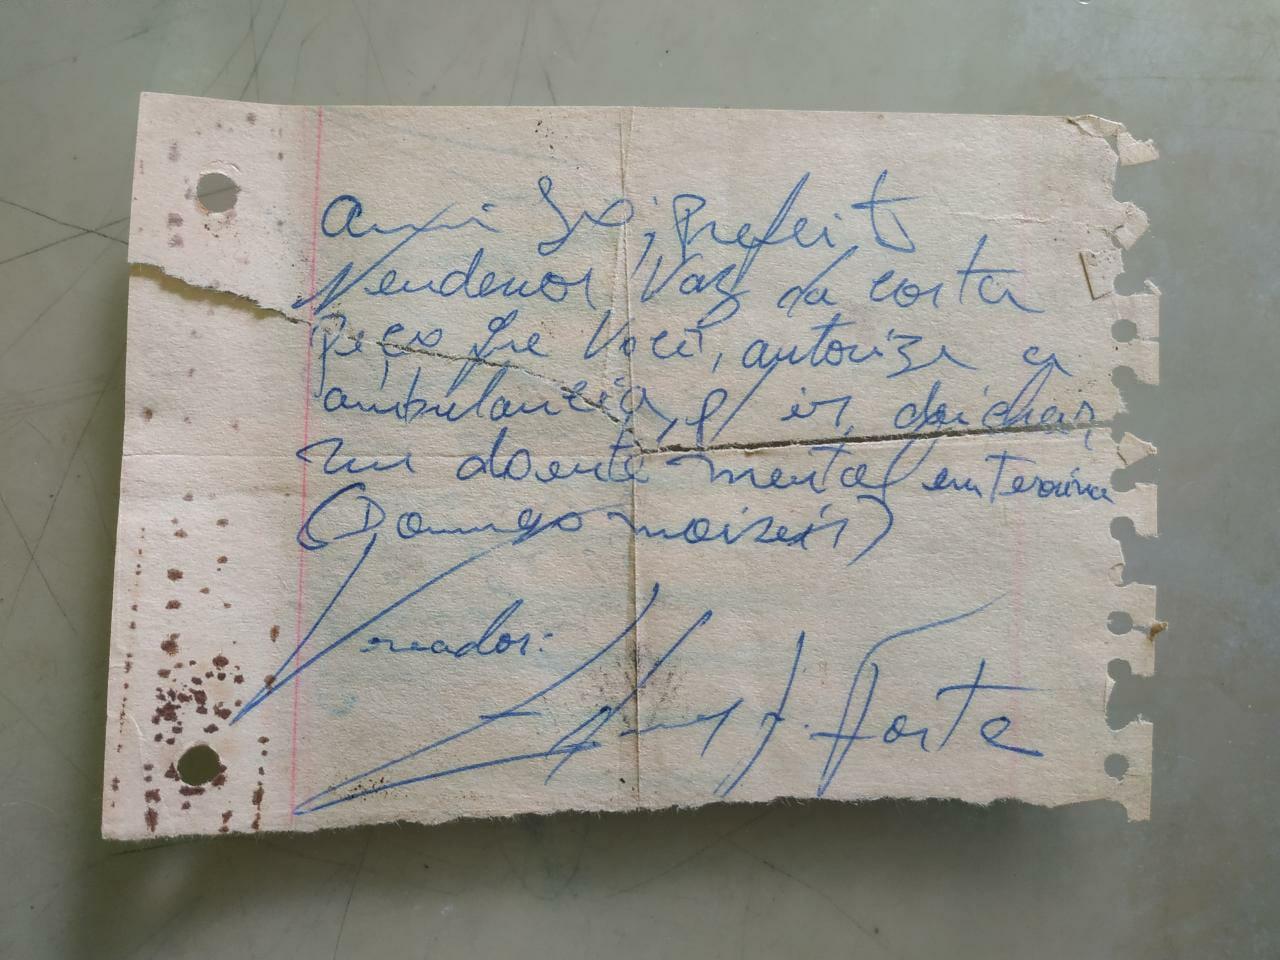 Amigo, Prefeito
Vaz da Costa
Peço que Você, autorize a
ambulancia, p/ ir, deichar,
um doente mental em Teresina
(Domingo moisés)
Vereador:
J. Forte